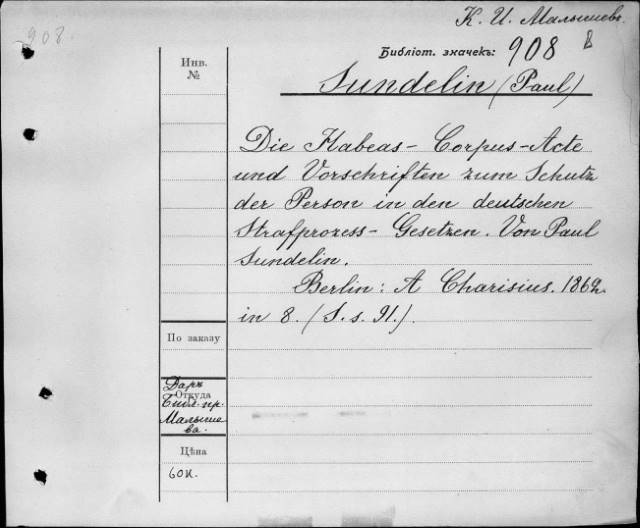 908.
К. И. Малышевъ.
Библіот. значекъ: 908 В
Sundelin (Paul)
Инв.
№
Die Habeas-Corpus-Acte
und Vorschriften zum Schutz
der Person in den deutschen
Strafprozess-Gesetzen. Von Paul
Sundelin.
Berlin: A Charisius. 1862.
in 8. (S. s. 91.).
По заказу
Даръ
Откуда
Библ. пр.
Малыше
ва.
Цѣна
60 к.